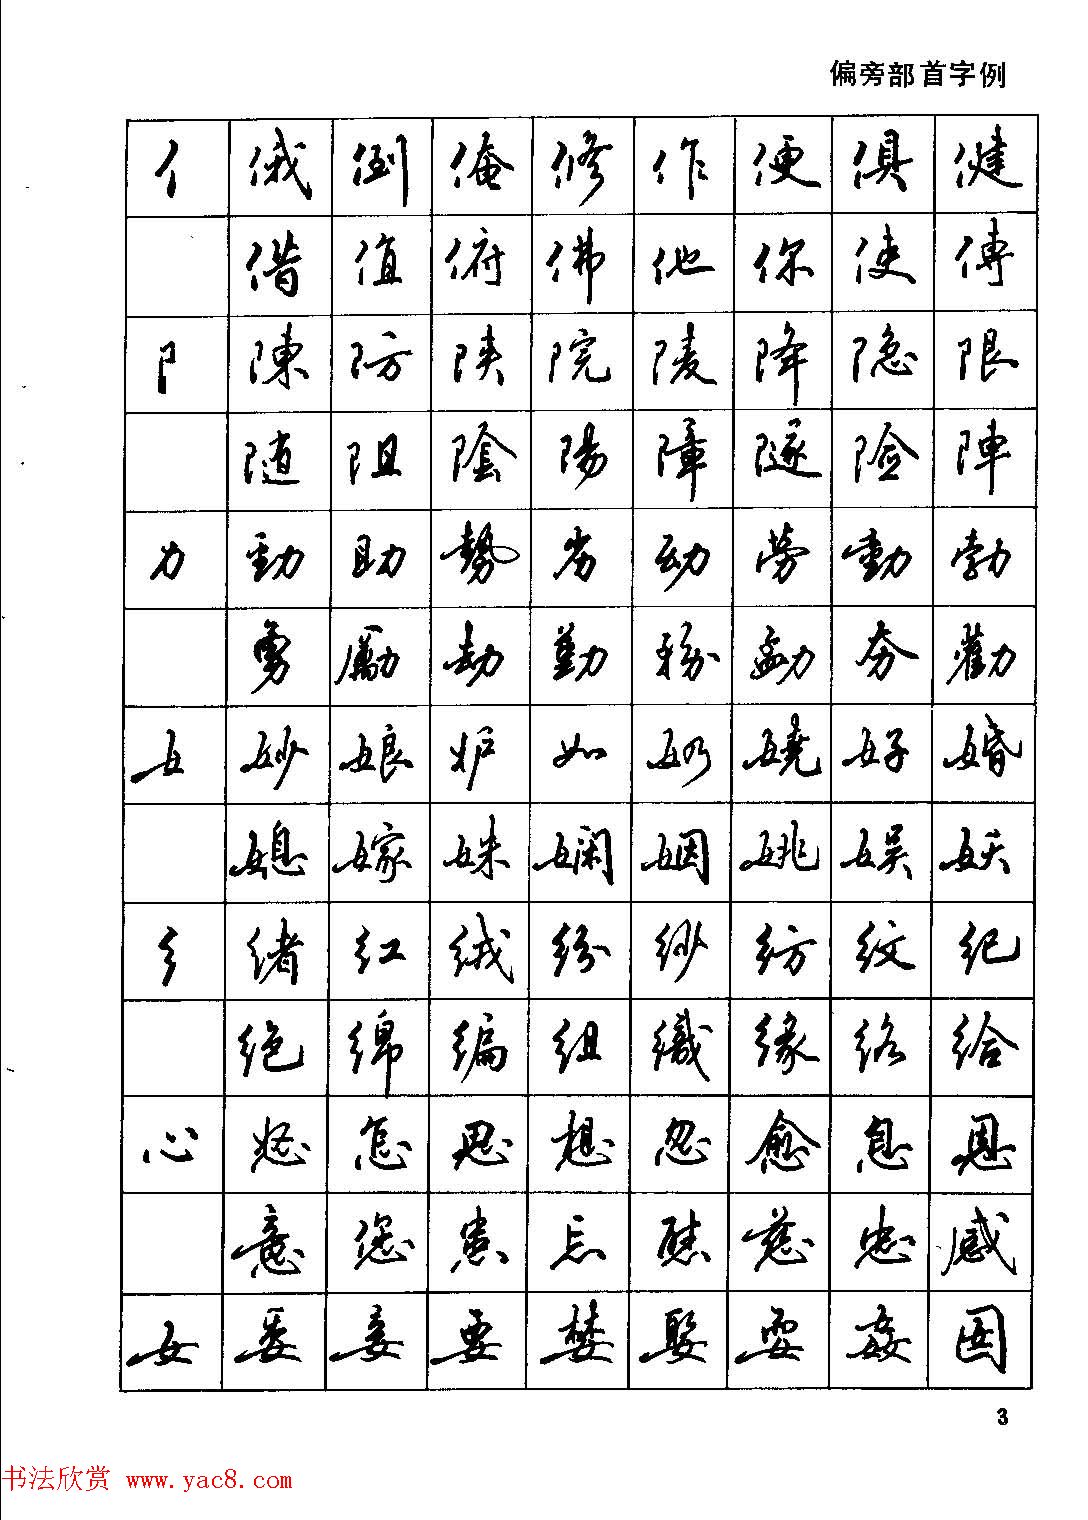 偏旁部首字例
亻 俄 倒 俺 修 作 便 俱 健
借 值 俯 佛 他 你 使 傳
阝 陳 防 陕 院 陵 降 隐 限
随 阻 陰 陽 障 隧 险 陣
力 動 助 勢 劣 幼 劳 勳 勃
勇 勵 劫 勤 勸
女 妙 娘 妒 如 娆 好 婚
媳 嫁 妹 娴 姻 姚 娱 妖
纟 绪 红 绒 纷 纱 纺 纹 纪
绝 绵 编 组 織 缘 络 给
心 怒 怎 思 想 忽 愈 息 恩
意 您 患 忘 慈 忠 感
女 委 妾 要 娶 耍 姦
3
书法欣赏 www.yac8.com